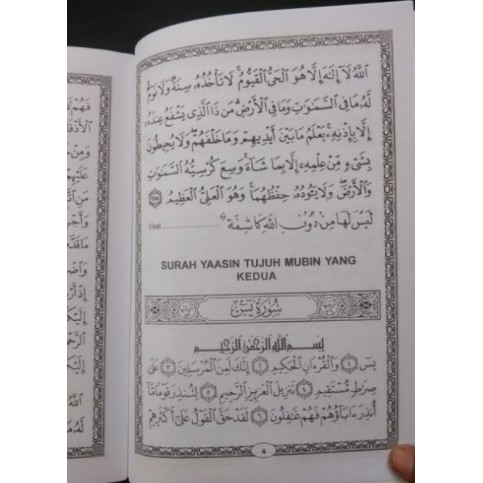 اللَّهُ لَا إِلَٰهَ إِلَّا هُوَ الْحَيُّ الْقَيُّومُ ۚ لَا تَأْخُذُهُ سِنَةٌ وَلَا نَوْمٌ ۚ
لَهُ مَا فِي السَّمَٰوَٰتِ وَمَا فِي الْأَرْضِ ۗ مَن ذَا الَّذِي يَشْفَعُ عِندَهُ
إِلَّا بِإِذْنِهِ ۚ يَعْلَمُ مَا بَيْنَ أَيْدِيهِمْ وَمَا خَلْفَهُمْ ۖ وَلَا يُحِيطُونَ
بِشَيْءٍ مِّنْ عِلْمِهِ إِلَّا بِمَا شَاءَ ۚ وَسِعَ كُرْسِيُّهُ السَّمَٰوَٰتِ
وَالْأَرْضَ ۖ وَلَا يَئُودُهُ حِفْظُهُمَا ۚ وَهُوَ الْعَلِيُّ الْعَظِيمُ ﴿٢٥٥﴾
لَيْسَ لَهَا مِنْ دُونِ اللَّهِ كَاشِفَةٌ
SURAH YAASIN TUJUH MUBIN YANG
KEDUA
سُورَةُ يٰسٓ
بِسْمِ اللَّهِ الرَّحْمَٰنِ الرَّحِيمِ
يسٓ ﴿١﴾ وَالْقُرْءَانِ الْحَكِيمِ ﴿٢﴾ إِنَّكَ لَمِنَ الْمُرْسَلِينَ ﴿٣﴾ عَلَىٰ
صِرَٰطٍ مُّسْتَقِيمٍ ﴿٤﴾ تَنزِيلَ الْعَزِيزِ الرَّحِيمِ ﴿٥﴾ لِتُنذِرَ قَوْمًا مَّا
أُنذِرَ ءَابَاؤُهُمْ فَهُمْ غَٰفِلُونَ ﴿٦﴾ لَقَدْ حَقَّ الْقَوْلُ عَلَىٰ أَكْثَرِهِمْ
4